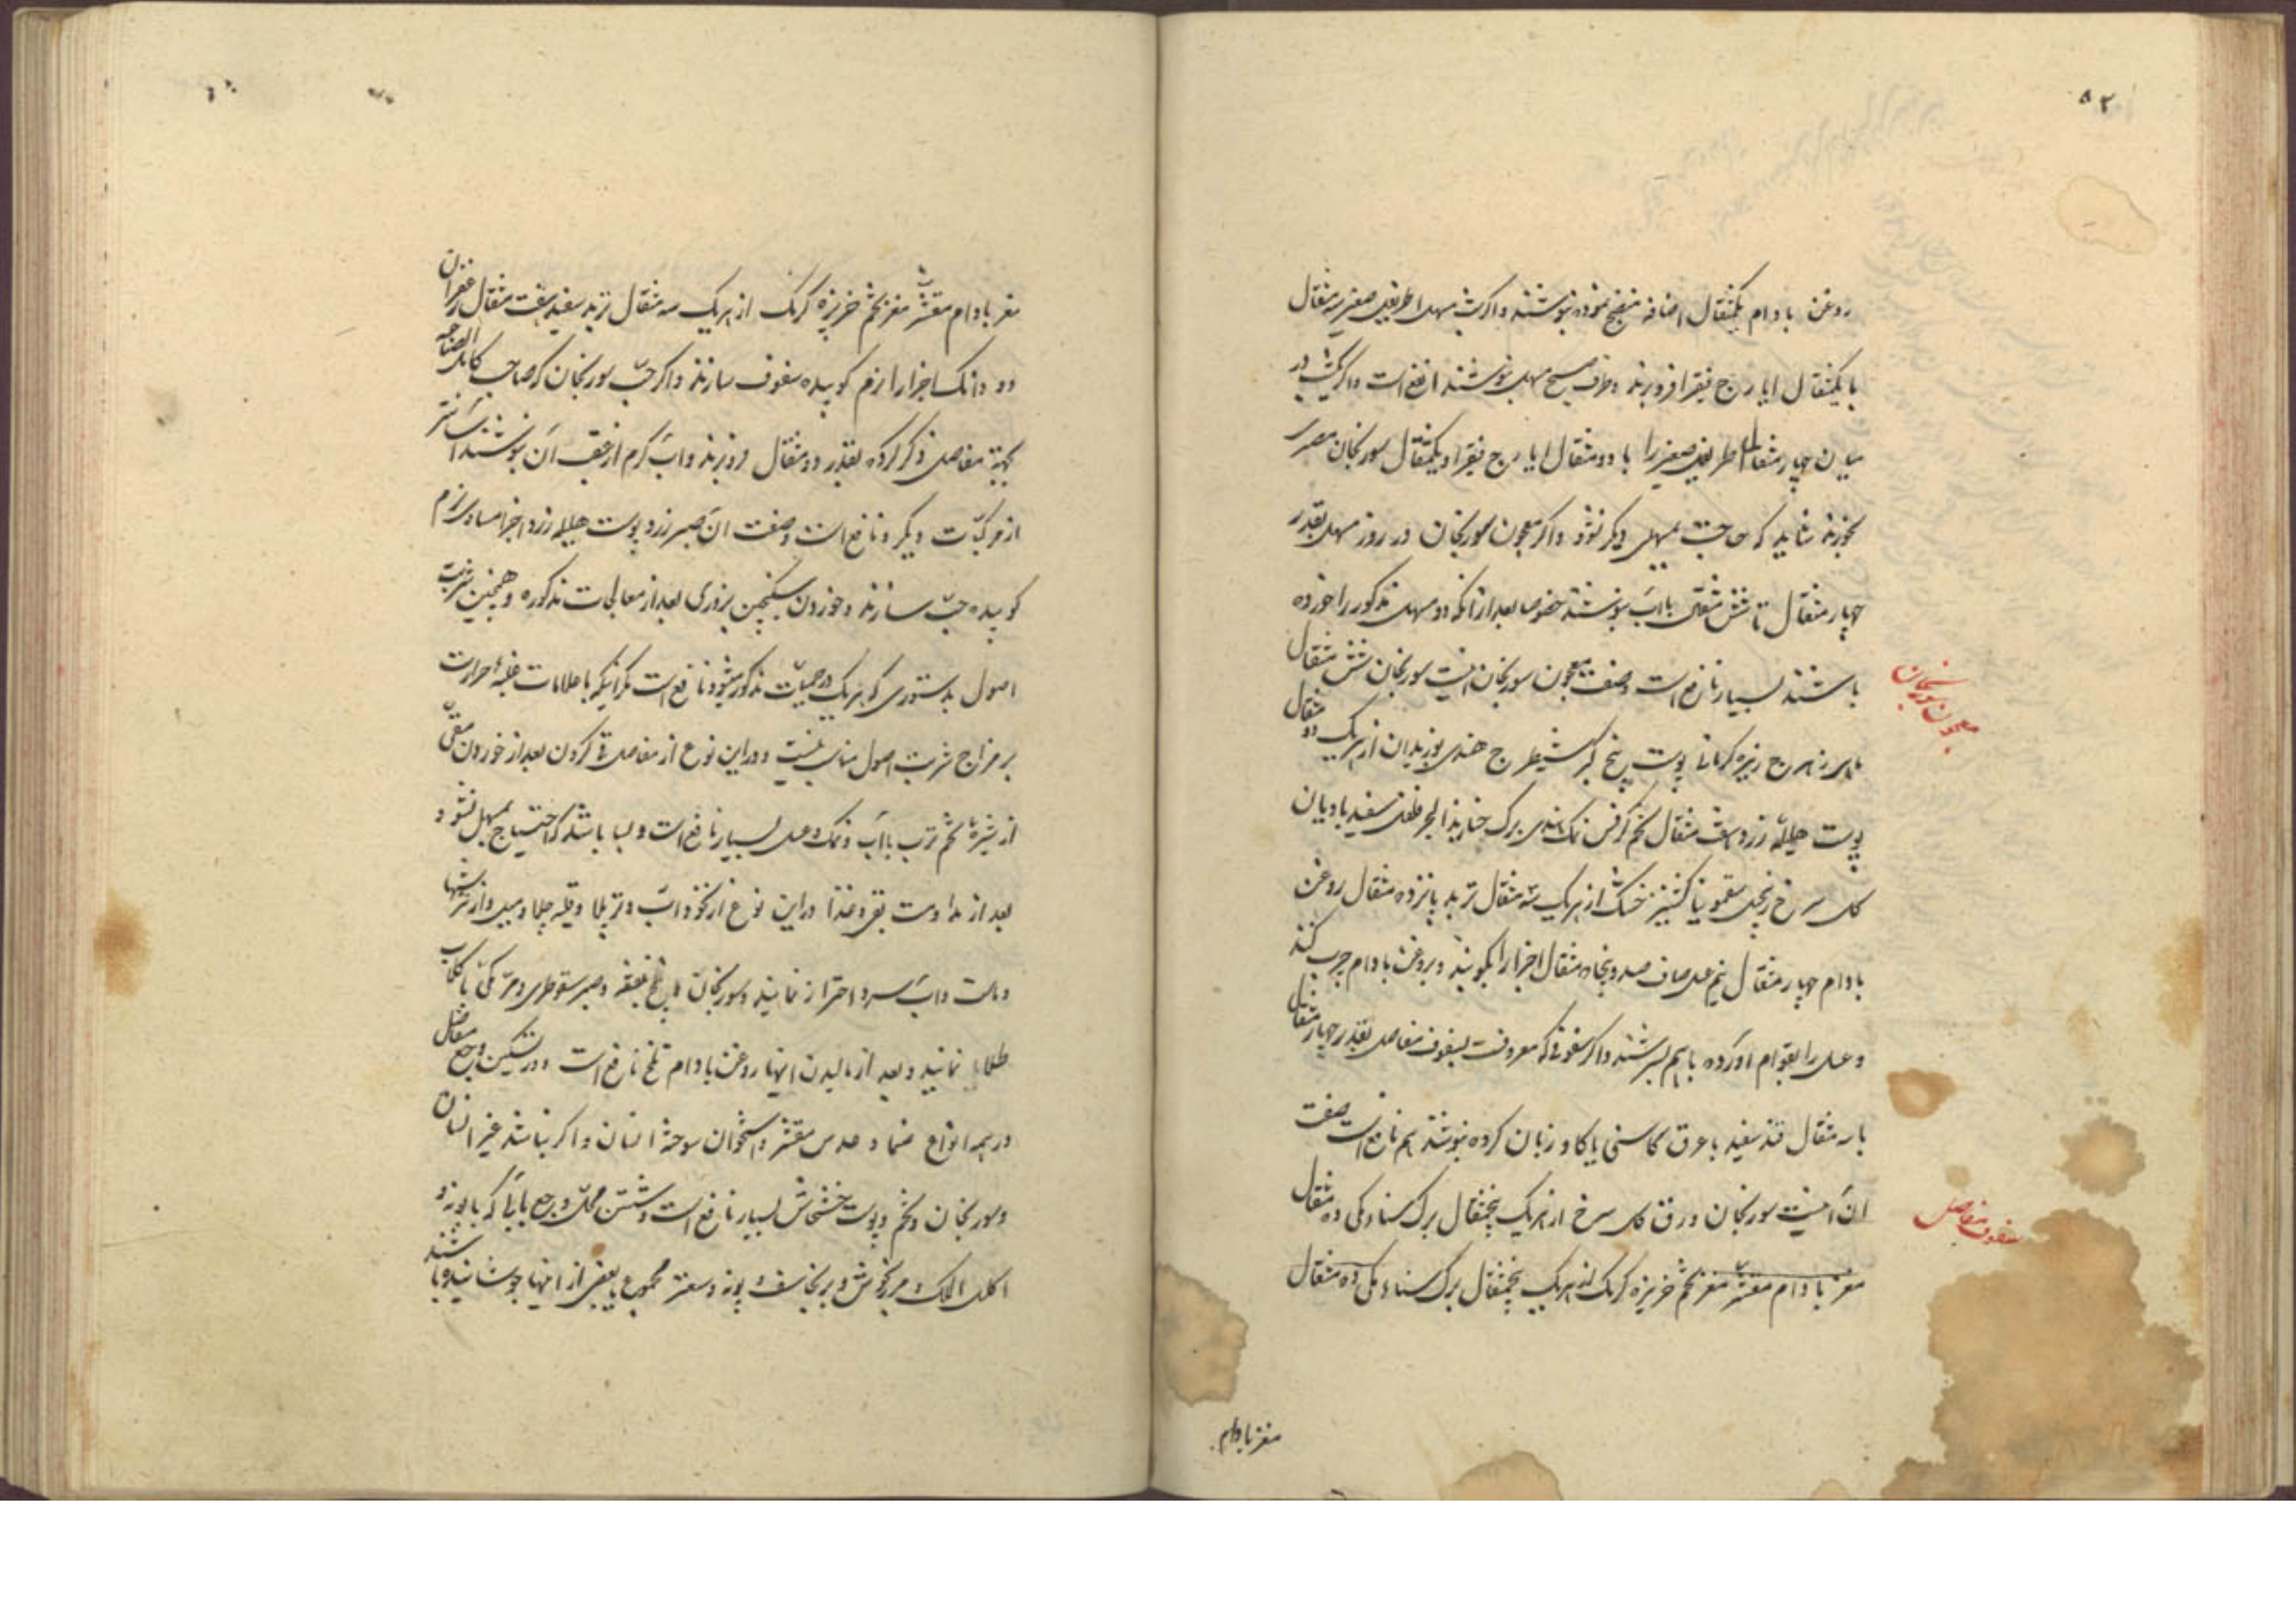 ۵۲
روغن بادام یکمثقال اضافه منضج نموده بنوشند و اگر شب مسهل اطریفل صغیر سه مثقال
با یکمثقال ایارج فیقرا فروبرند و صبح مسهل بنوشند انفع است و اگر یکشب در
میان چهار مثقال اطریفل صغیر را با دو مثقال ایارج فیقرا و یکمثقال سورنجان مصری
بخورند شاید که حاجت بمسهلی دیگر نشود و اگر معجون سورنجان در روز مسهل بقدر
چهار مثقال تا شش مثقال بآب بنوشند خصوصا بعد از آنکه دو مسهل مذکور را خورده
باشند بسیار نافع است و صفت معجون سورنجان اینست سورنجان شش مثقال
معجون سورنجان
زیره کرمانی پوست بیخ کبر شیطرج هندی بوزیدان از هریک دو مثقال
پوست هلیله زرد هفت مثقال تخم کرفس نمک هندی برک حنا زبد البحر فلفل سفید بادیان
کل سرخ زنجبیل سقمونیا کشنیز خشک از هریک سه مثقال تربد پانزده مثقال روغن
بادام چهار مثقال نیم عسل صاف صد و پنجاه مثقال اجزا را بکوبند و بروغن بادام چرب کنند
و عسل را بقوام آورده باهم بسرشند و اکر سفوفی که معروفست بسفوف مفاصل بقدر چهار مثقال
با سه مثقال قند سفید با عرق کاسنی یا کاوزبان کرده بنوشند هم نافع است صفت
آن اینست سورنجان ورق کل سرخ از هریک پنجمثقال برک سناء مکی ده مثقال
سفوف مفاصل
مغز بادام مقشر مغز تخم خربزه کرمک از هریک پنجمثقال برک سناء مکی ده مثقال
مغز بادام
مغز بادام مقشر مغز تخم خربزه کرمک از هریک سه مثقال تربد سفید هفت مثقال زعفران
دو دانک اجزا را نرم کوبیده سفوف سازند و اکر حب سورنجان که صاحب کامل الصناعه
بجهة مفاصل ذکر کرده بقدر دو مثقال فروبرند و آب کرم از عقب آن بنوشند آسانتر
از مرکبات دیکر و نافع است و صفت آن صبر زرد پوست هلیله زرد اجزا مساوی نرم
کوبیده حب سازند و خوردن سکنجبین بزوری بعد از معالجات مذکوره و همچنین شربت
اصول بدستوری که هریک در حمیات مذکور میشود نافع است مکر اینکه با علامات غلبه حرارت
بر مزاج شربت اصول مناسب نیست و در این نوع از مفاصل قی کردن بعد از خوردن مقئ
از شیره تخم ترب با آب و نمک و عسل بسیار نافع است و بسا باشد که احتیاج بمسهل نشود و
بعد از مداومت بقی و غذا در این نوع از نخود آب و قلیه چلاو میل و از ترشیها
و ماست و آب سرد احتراز نمایند و سورنجان تلخ صبر سقوطری و مر مکی با کلاب
طلا نمایند و بعد از مالیدن اینها روغن بادام تلخ نافع است و در تسکین وجع مفاصل
در همه انواع ضماد عدس مقشر و استخوان سوخته انسان و اکر نباشد غیر انسان
و سورنجان و تخم و پوست خشخاش بسیار نافع است و شستن محل وجع بآبی که بابونه و
اکلیل الملک و مرزنجوش و برنجاسف و پونه و سعتر مجموع یا بعضی از اینها جوشانیده باشند